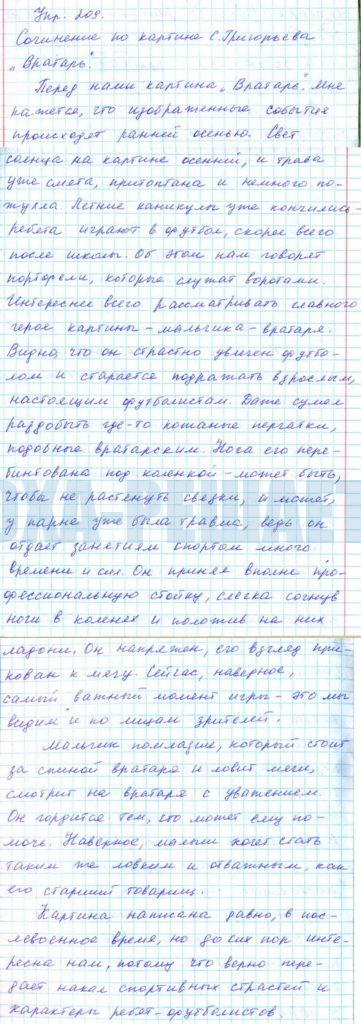 Упр. 209.
Сочинение по картине С. Григорьева
„Вратарь".
Перед нами картина „Вратарь". Мне
кажется, что изображенные события
происходят ранней осенью. Свет
солнца на картине осенний, и трава
уже смята, притоптана и немного по-
жухла. Летние каникулы уже кончились-
ребята играют в футбол, скорее всего
после школы. Об этом нам говорят
портфели, которые служат воротами.
Интереснее всего рассматривать главного
героя картины - мальчика-вратаря.
Видно, что он страстно увлечен футбо-
лом и старается подражать взрослым,
настоящим футболистам. Даже сумел
раздобыть где-то кожаные перчатки,
подобные вратарским. Нога его пере-
бинтована под коленкой - может быть,
чтобы не растянуть связки, а может,
у парня уже была травма, ведь он
отдает занятиям спортом много
времени и сил. Он принял вполне про-
фессиональную стойку, слегка согнув
ноги в коленях и положив на них
ладони. Он напряжен, его взгляд при-
кован к мячу. Сейчас, наверное,
самый важный момент игры - это мы
видим и по лицам зрителей.
Мальчик помладше, который стоит
за спиной вратаря и ловит мячи,
смотрит на вратаря с уважением.
Он гордится тем, что может ему по-
мочь. Наверное, малыш хочет стать
таким же ловким и отважным, как
его старший товарищ.
Картина написана давно, в пос-
левоенное время, но до сих пор инте-
ресна нам, потому что верно пере-
дает накал спортивных страстей и
характеры ребят-футболистов.